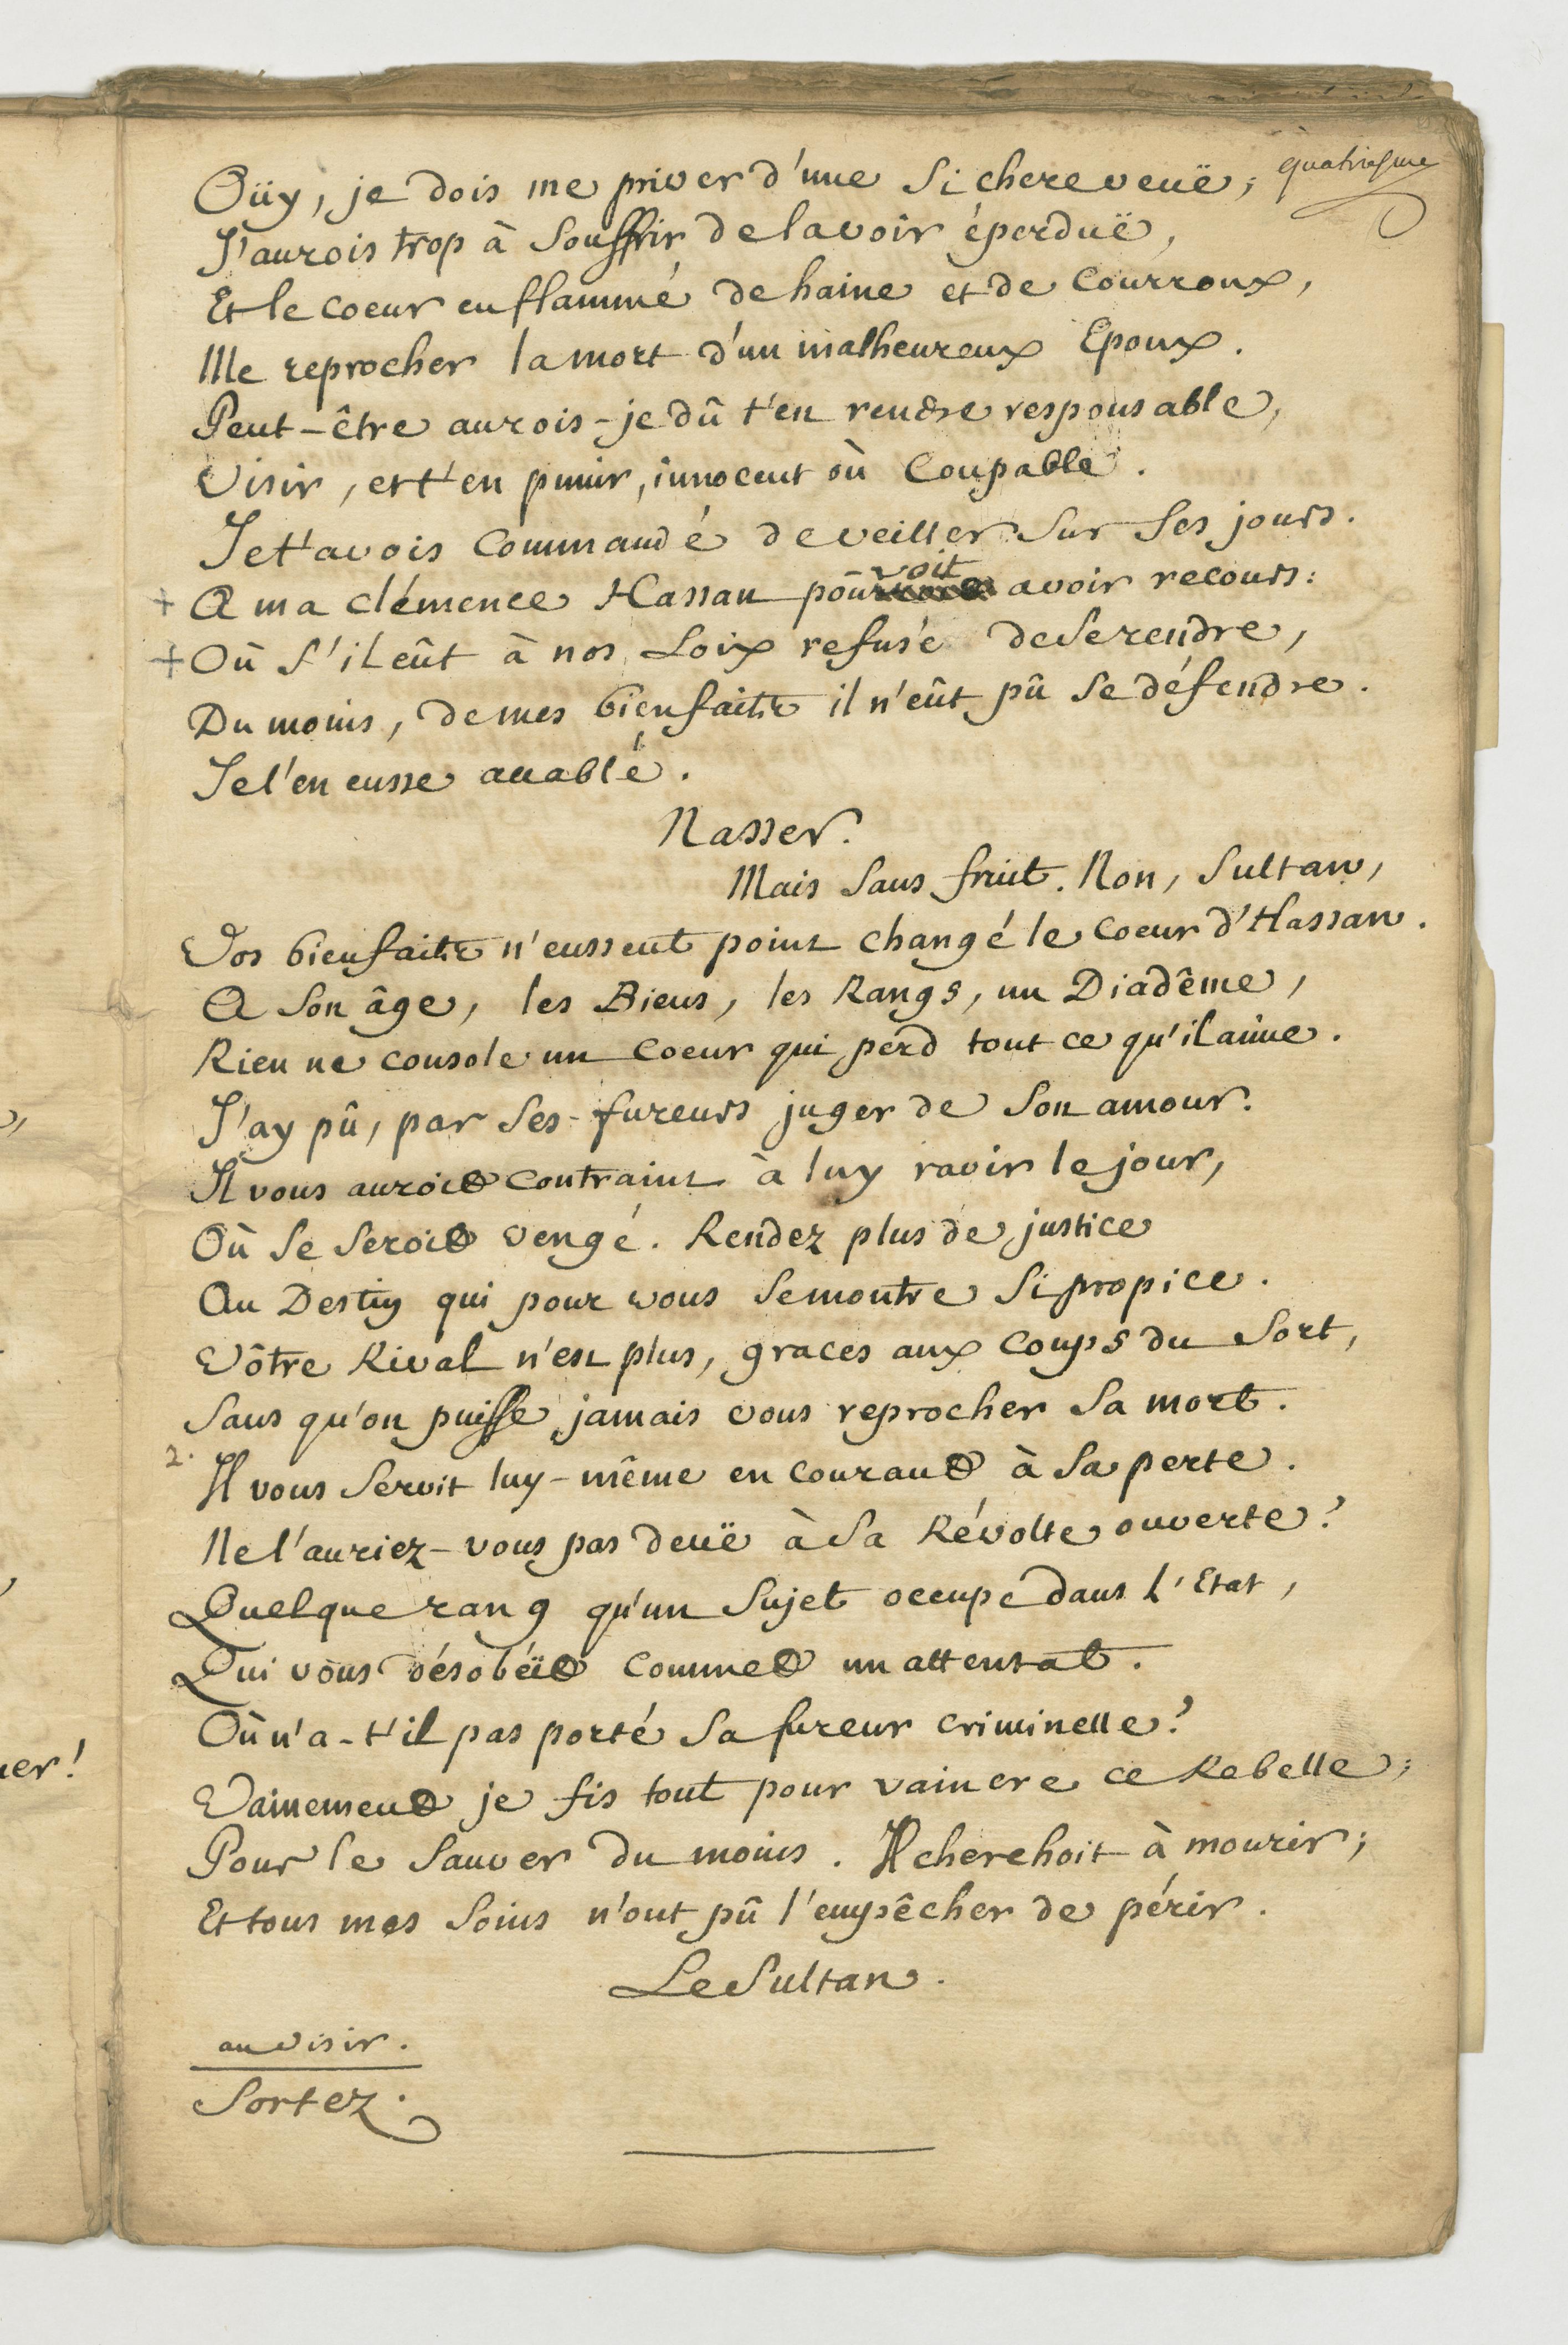 quatriesme
Oüy, je dois me priver d'une si chere veuë;
J'aurois trop à souffrir de la voir éperduë,
Et le coeur enflammé de haine et de courroux,
Me reprocher la mort d'un malheureux Epoux.
Peut-être aurois-je dû t'en rendre responsable,
Visir, et t'en punir, innocent où coupable.
Je t'avois commandé de veiller sur ses jours.
+ A ma clémence Hassan pouvoit avoir recours:
+ Où s'il eût à nos Loix refusé de se rendre,
Du moins, de mes bienfaits il n'eût pû se défendre.
Je l'en eusse accablé.
Nasser.
Mais sans fruit. Non, Sultan,
Vos bienfaits n'eussent point changé le coeur d'Hassan.
A son âge, les Biens, les Rangs, un Diadême,
Rien ne console un coeur qui perd tout ce qu'il aime.
J'ay pû, par ses fureurs juger de son amour.
Il vous auroit contraint à luy ravir le jour,
Où se seroit vengé. Rendez plus de justice
Au Destin qui pour vous se montre si propice.
Vôtre Rival n'est plus, graces aux coups du sort,
Sans qu'on puisse jamais vous reprocher sa mort.
2. Il vous servit luy-même en courant à sa perte.
Ne l'auriez-vous pas deuë à sa Révolte ouverte?
Quelque rang qu'un sujet occupe dans l'Etat,
Qui vous désobéït commet un attentat.
Où n'a-t'il pas porté sa fureur criminelle?
Vainement je fis tout pour vaincre ce Rebelle;
Pour le sauver du moins. Il cherchoit à mourir;
Et tous mes soins n'ont pû l'empêcher de périr.
Le Sultan.
au visir.
Sortez.
ner!